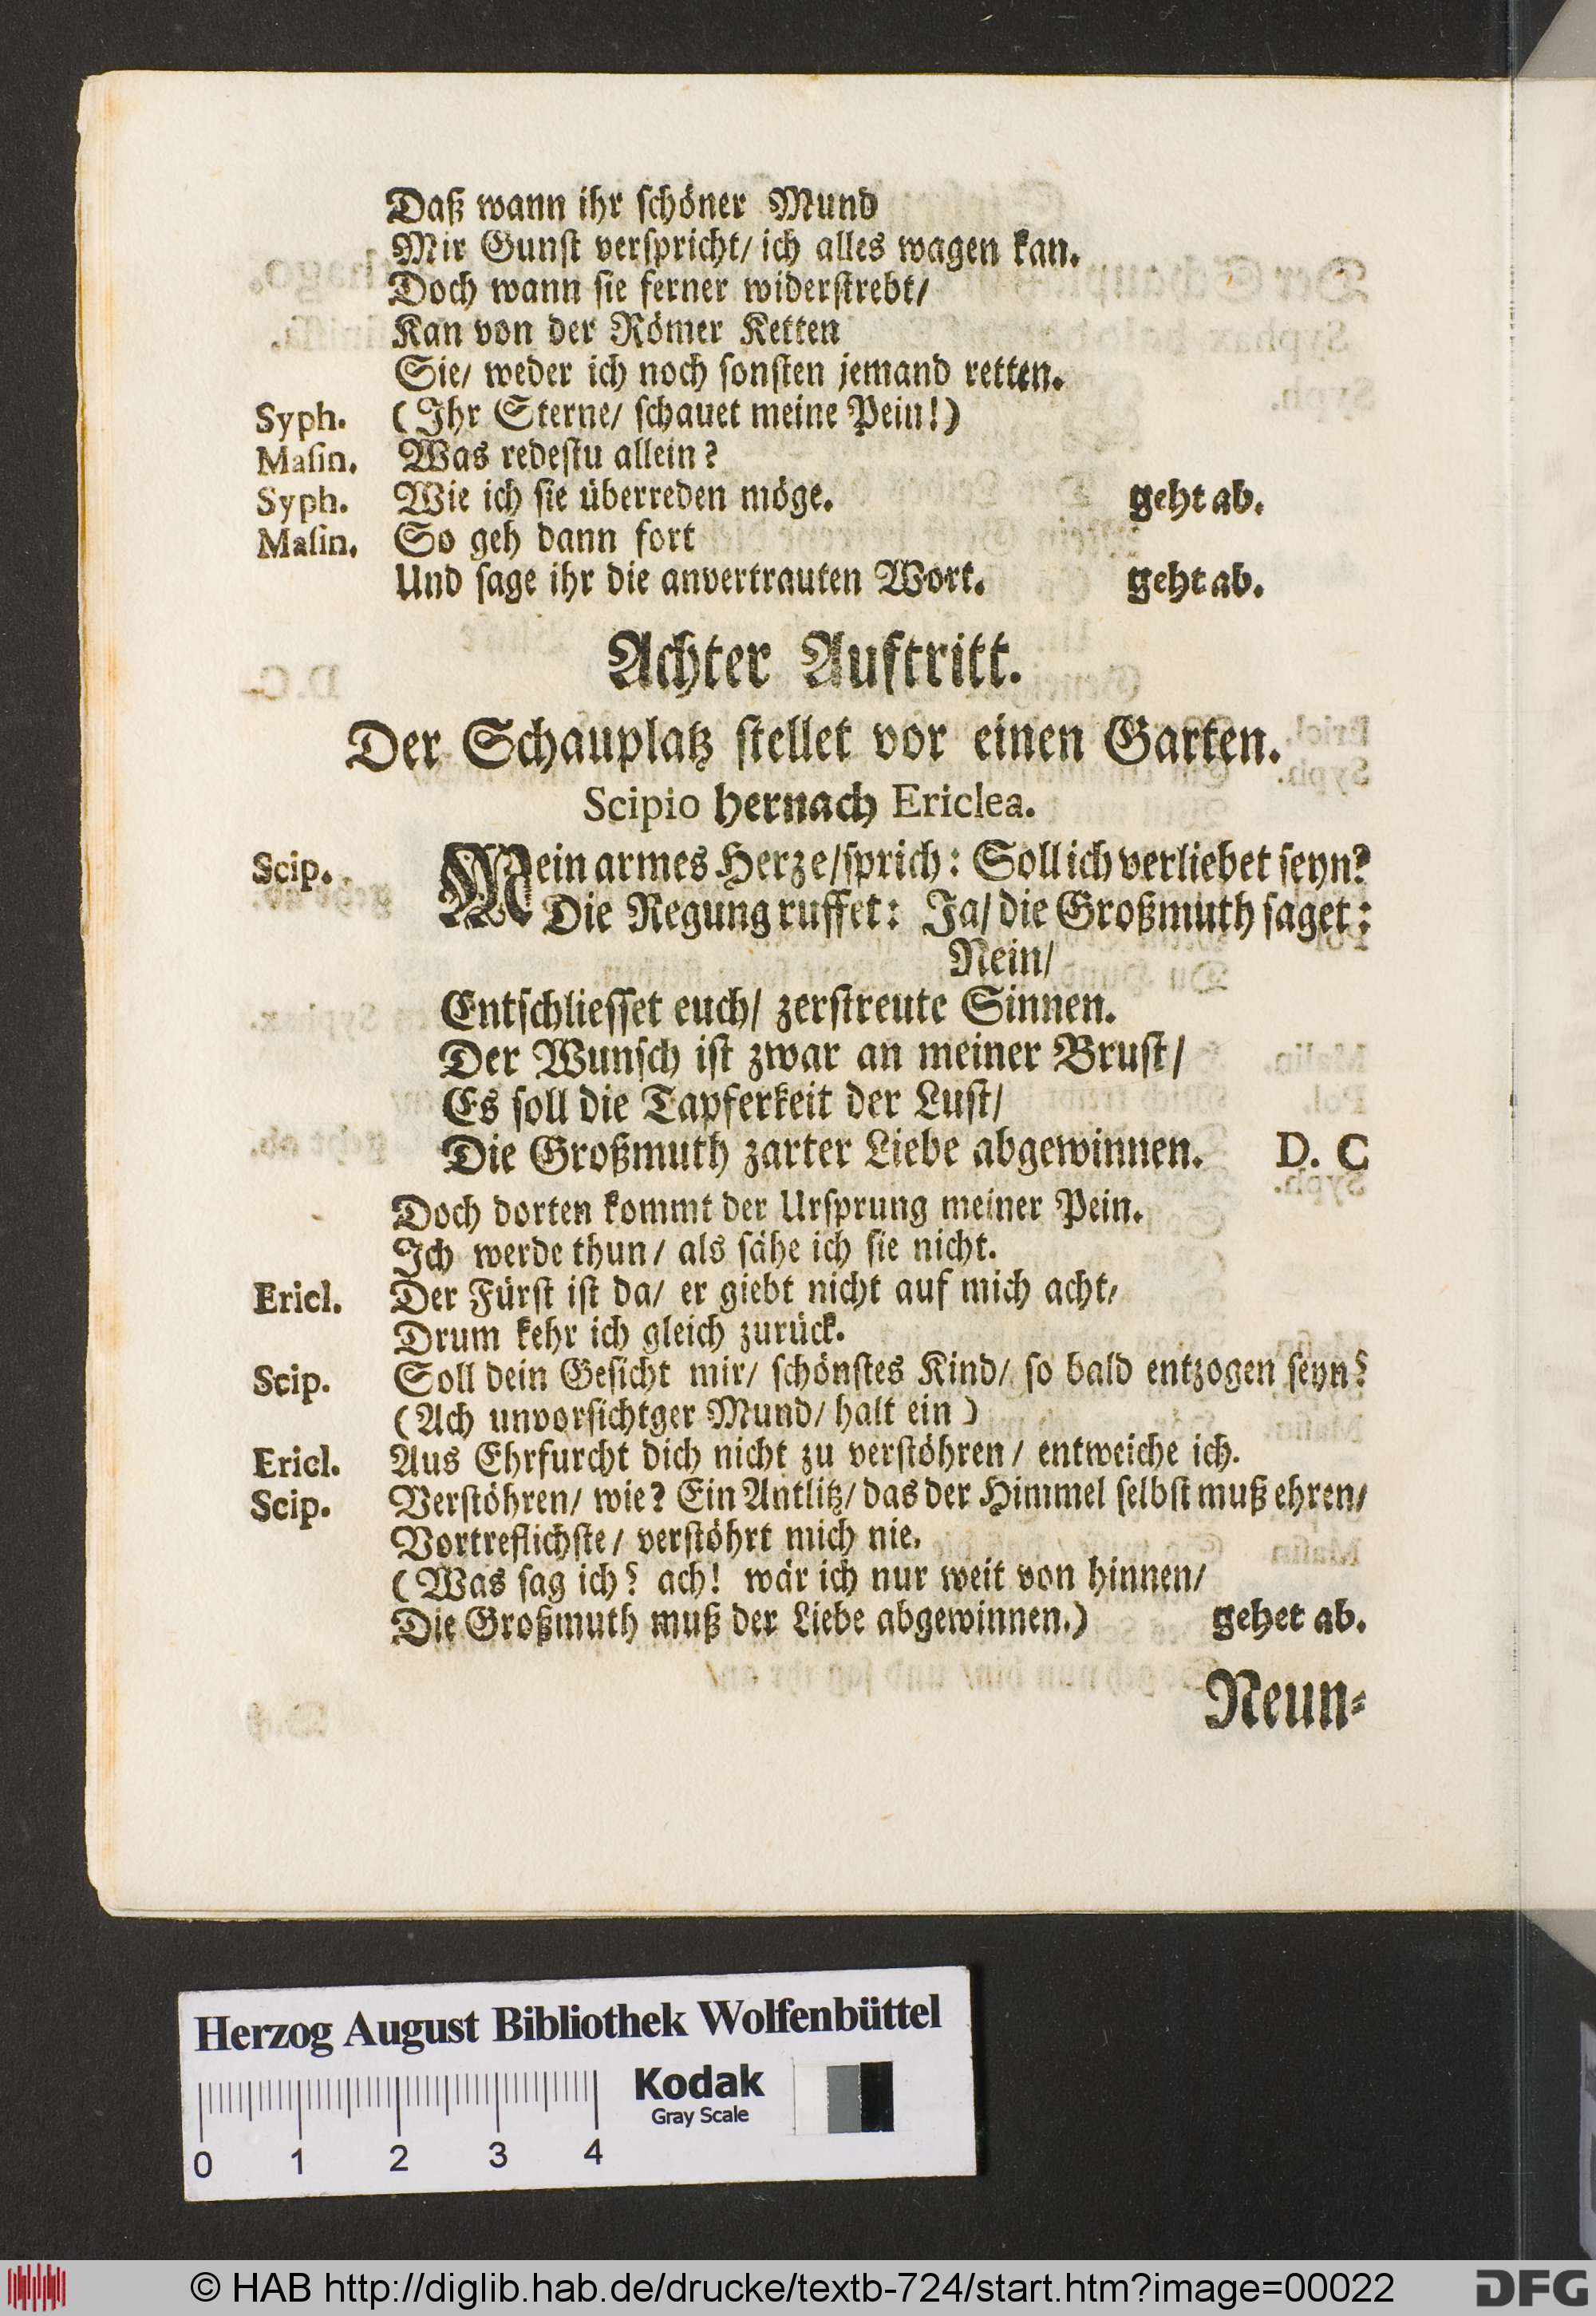 Daß wann ihr ſchöner Mund
Mir Gunſt verſpricht/ ich alles wagen kan.
Doch wann ſie ferner widerſtrebt/
Kan von der Römer Ketten
Sie/ weder ich noch ſonſten jemand retten.
Syph. (Ihr Sterne/ ſchauet meine Pein!)
Maſin. Was redeſtu allein?
Syph. Wie ich ſie überreden möge. geht ab.
Maſin. So geh dann fort
Und ſage ihr die anvertrauten Wort. geht ab.
Achter Auftritt.
Der Schauplatz ſtellet vor einen Garten.
Scipio hernach Ericlea.
Scip. Mein armes Herze/ſprich: Soll ich verliebet ſeyn?
Die Regung ruffet: Ja/ die Großmuth ſaget:
Nein/
Entſchlieſſet euch/ zerſtreute Sinnen.
Der Wunſch iſt zwar an meiner Bruſt/
Es ſoll die Tapferkeit der Luſt/
Die Großmuth zarter Liebe abgewinnen. D. C
Doch dorten kommt der Urſprung meiner Pein.
Ich werde thun/ als ſähe ich ſie nicht.
Ericl. Der Fürſt iſt da/ er giebt nicht auf mich acht/
Drum kehr ich gleich zurück.
Scip. Soll dein Geſicht mir/ ſchönſtes Kind/ ſo bald entzogen ſeyn?
(Ach unvorſichtger Mund/ halt ein)
Ericl. Aus Ehrfurcht dich nicht zu verſtöhren/ entweiche ich.
Scip. Verſtöhren/ wie? Ein Antlitz/ das der Himmel ſelbſt muß ehren/
Vortreflichſte/ verſtöhrt mich nie.
(Was ſag ich? ach! wär ich nur weit von hinnen/
Die Großmuth muß der Liebe abgewinnen.) gehet ab.
Neun⸗
Herzog August Bibliothek Wolfenbüttel
Kodak
Gray Scale
0 1 2 3 4
© HAB http://diglib.hab.de/drucke/textb-724/start.htm?image=00022
DFG